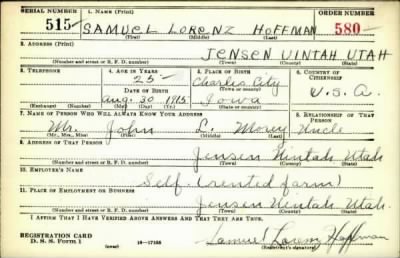 SERIAL NUMBER 1. NAME (Print) ORDER NUMBER
515 SAMUEL LORENZ HOFFMAN 580
(First) (Middle) (Last)
2. ADDRESS (Print)
JENSEN UINTAH UTAH
(Number and street or R. F. D. number) (Town) (County) (State)
3. TELEPHONE 4. AGE IN YEARS 5. PLACE OF BIRTH 6. COUNTRY OF CITIZENSHIP
25 Charles City
DATE OF BIRTH (Town or county)
Aug. 30 1915 Iowa U.S.A.
(Exchange) (Number) (Mo.) (Day) (Yr.) (State or country)
7. NAME OF PERSON WHO WILL ALWAYS KNOW YOUR ADDRESS 8. RELATIONSHIP OF THAT PERSON
Mr. John L. Uncle
(Mr., Mrs., Miss) (First) (Middle) (Last)
9. ADDRESS OF THAT PERSON
Jensen Uintah Utah
(Number and street or R. F. D. number) (Town) (County) (State)
10. EMPLOYER'S NAME
Self. (rented farm)
11. PLACE OF EMPLOYMENT OR BUSINESS
Jensen Uintah Utah.
(Number and street or R. F. D. number) (Town) (County) (State)
I AFFIRM THAT I HAVE VERIFIED ABOVE ANSWERS AND THAT THEY ARE TRUE.
REGISTRATION CARD
D. S. S. Form 1 (over) 16—17105 Samuel Lorenz Hoffman
(Registrant's signature)